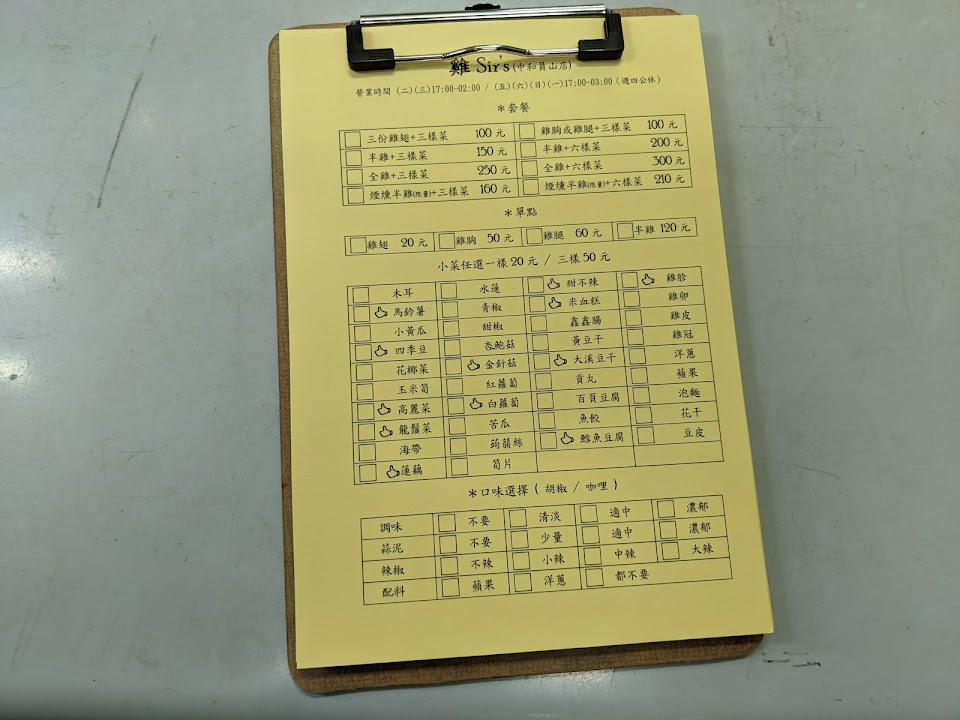 雞 Sir's (中和員山店)
營業時間 (二)(三)17:00-02:00 / (五)(六)(日)(一)17:00-03:00 (週四公休)
＊套餐
三份雞翅+三樣菜 100 元 雞胸或雞腿+三樣菜 100 元
半雞+三樣菜 150 元 半雞+六樣菜 200 元
全雞+三樣菜 250 元 全雞+六樣菜 300 元
煙燻半雞(限量)+三樣菜 160 元 煙燻半雞(限量)+六樣菜 210 元
＊單點
雞翅 20 元 雞胸 50 元 雞腿 60 元 半雞 120 元
小菜任選一樣 20 元 / 三樣 50 元
木耳 水蓮 甜不辣 雞胗
馬鈴薯 青椒 米血糕 雞卵
小黃瓜 甜椒 鑫鑫腸 雞皮
四季豆 杏鮑菇 黃豆干 雞冠
花椰菜 金針菇 大溪豆干 洋蔥
玉米筍 紅蘿蔔 貢丸 蘋果
高麗菜 白蘿蔔 百頁豆腐 泡麵
龍鬚菜 苦瓜 魚餃 花干
海帶 蒟蒻絲 鱈魚豆腐 豆皮
蓮藕 筍片
＊口味選擇 ( 胡椒 / 咖哩 )
調味 不要 清淡 適中 濃郁
蒜泥 不要 少量 適中 濃郁
辣椒 不辣 小辣 中辣 大辣
配料 蘋果 洋蔥 都不要